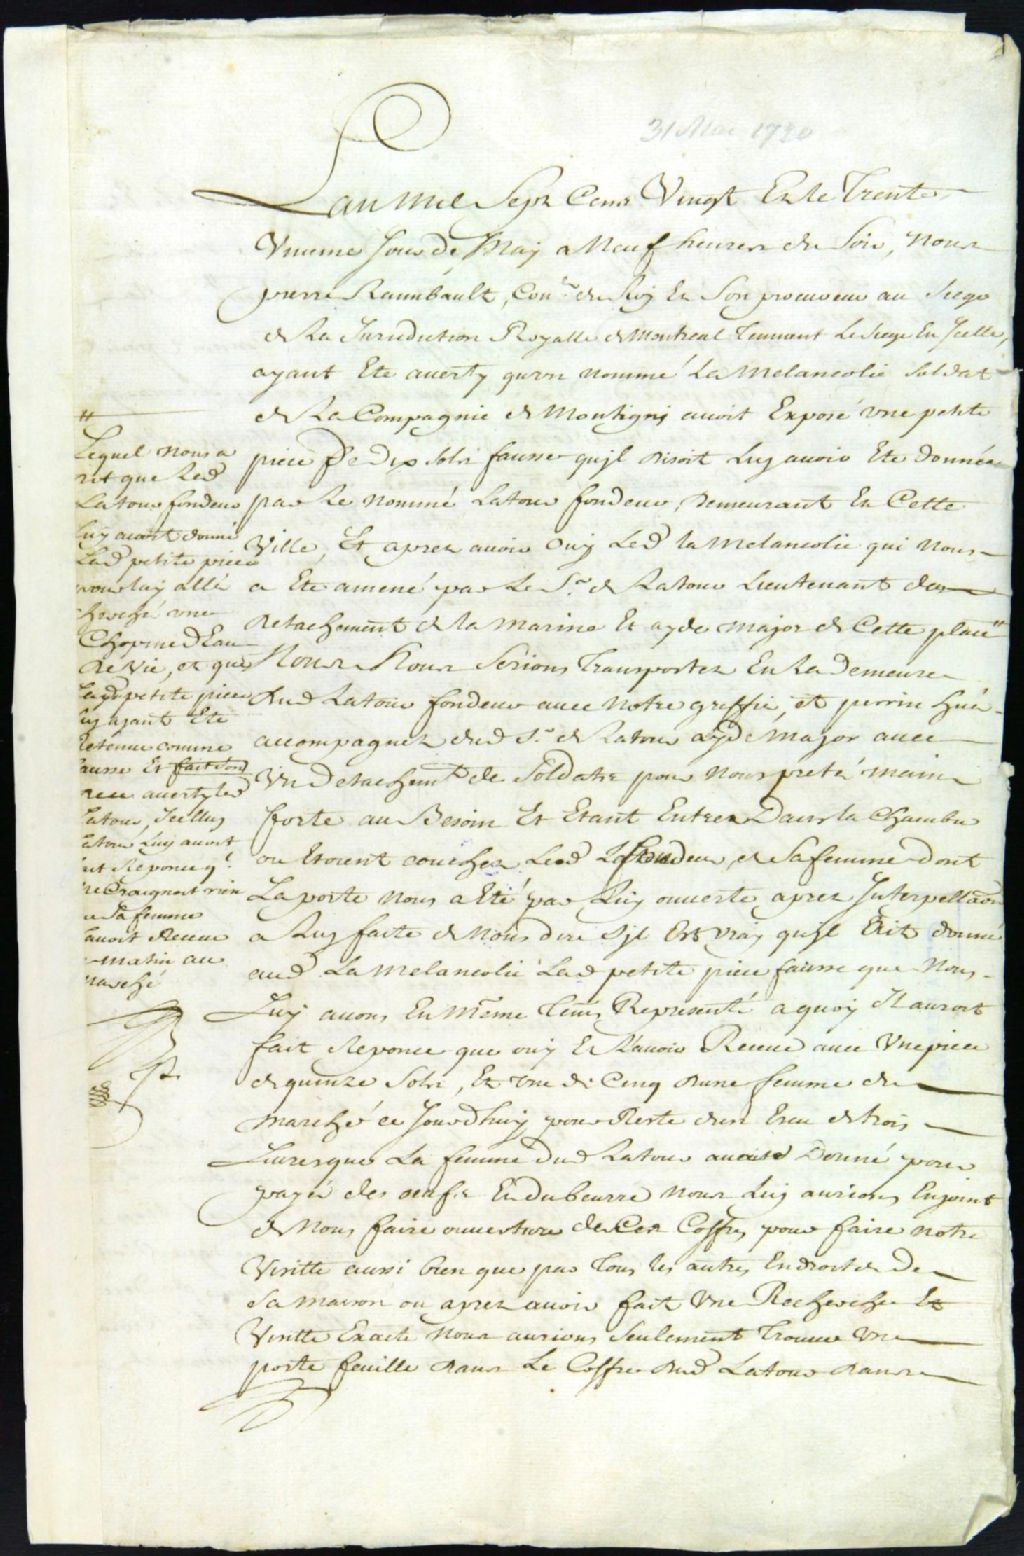 31 Mai 1720
Lan mil Sept Cens Vingt Et le Trente
Vnieme Jour de May a Neuf heures du Soir, Nous
pierre Raimbault, Con.er du Roy Et Son procureur au Siege
de La Jurisdiction Royalle de Montreal Tennant Le Siege En Jcelle,
ayant Eté auerty qu'vn nommé La Melancolie soldat
de La Compagnie de Montigny auoit Exposé vne petite
piece de dix sols fausse qujl disoit Luy auoir Eté donnée
par Le nommé Latour fondeur, demeurant En Cette
Ville, Et aprez auoir Ouy Led la Melancolie qui nous
a Eté amené par Le S.r de Latour Lieutenant du
detachem.t de la marine Et ayde major de Cette place #
Nous Nous Serions Transportez En La Demeure
dud Latour fondeur auec Notre greffier, et perrin huis.
accompagnez dud S.r de Latour ayde Major auec
Vn Detachem.t de Soldats pour Nous preter main
forte au Besoin Et Etant Entrez Dans la Chambre
ou Etoient couchez Led fondeur et Sa femme dont
La porte nous a Eté par Luy ouuerte aprez Jnterpellaon
a Luy faite de Nous dire Sjl Est vray qujl Eut donné
aud La Melancolie Lad petite piece fausse que Nous
Luy auons En même Tems Representé a quoy Jl auroit
fait Reponce que ouy Et L'auoir Receue auec Vne piece
de quinze Sols, Et vne de Cinq d'une femme du
marché ce Jourdhuy pour Reste d'un Ecu de trois
Liures que La femme Dud Latour auoit Donné pour
payer des oeufs Et du beurre Nous Luy aurions Enjoint
de Nous faire ouuerture de Ces Coffres pour faire notre
Visitte aussi bien que par Tous les autres Endroits De
Sa maison ou aprez auoir fait Vne Recherche Et
Visitte Exacte Nous aurions Seulement Trouué vne
porte feuille dans Le Coffre dud Latour dans
#
Lequel nous a
dit que Led
Latour fondeur
luy ayant donné
Lad petite piece
pour luy allé
cherché vne
Chopine d'Eau
de Vie, et que
lad petite piece
luy ayant Eté
Retenue comme
fausse Et
auerty led
Latour, Jcelluy
Latour Luy auoit
fait Reponce q.l
ne Craignoit rien
que Sa femme
l'auoit Receue
ce matin au
marché